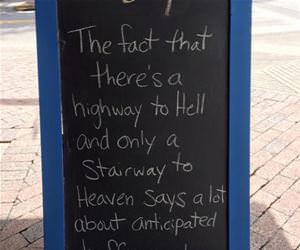 The fact that
there's a
highway to Hell
and only a
Stairway to
Heaven says a lot
about anticipated